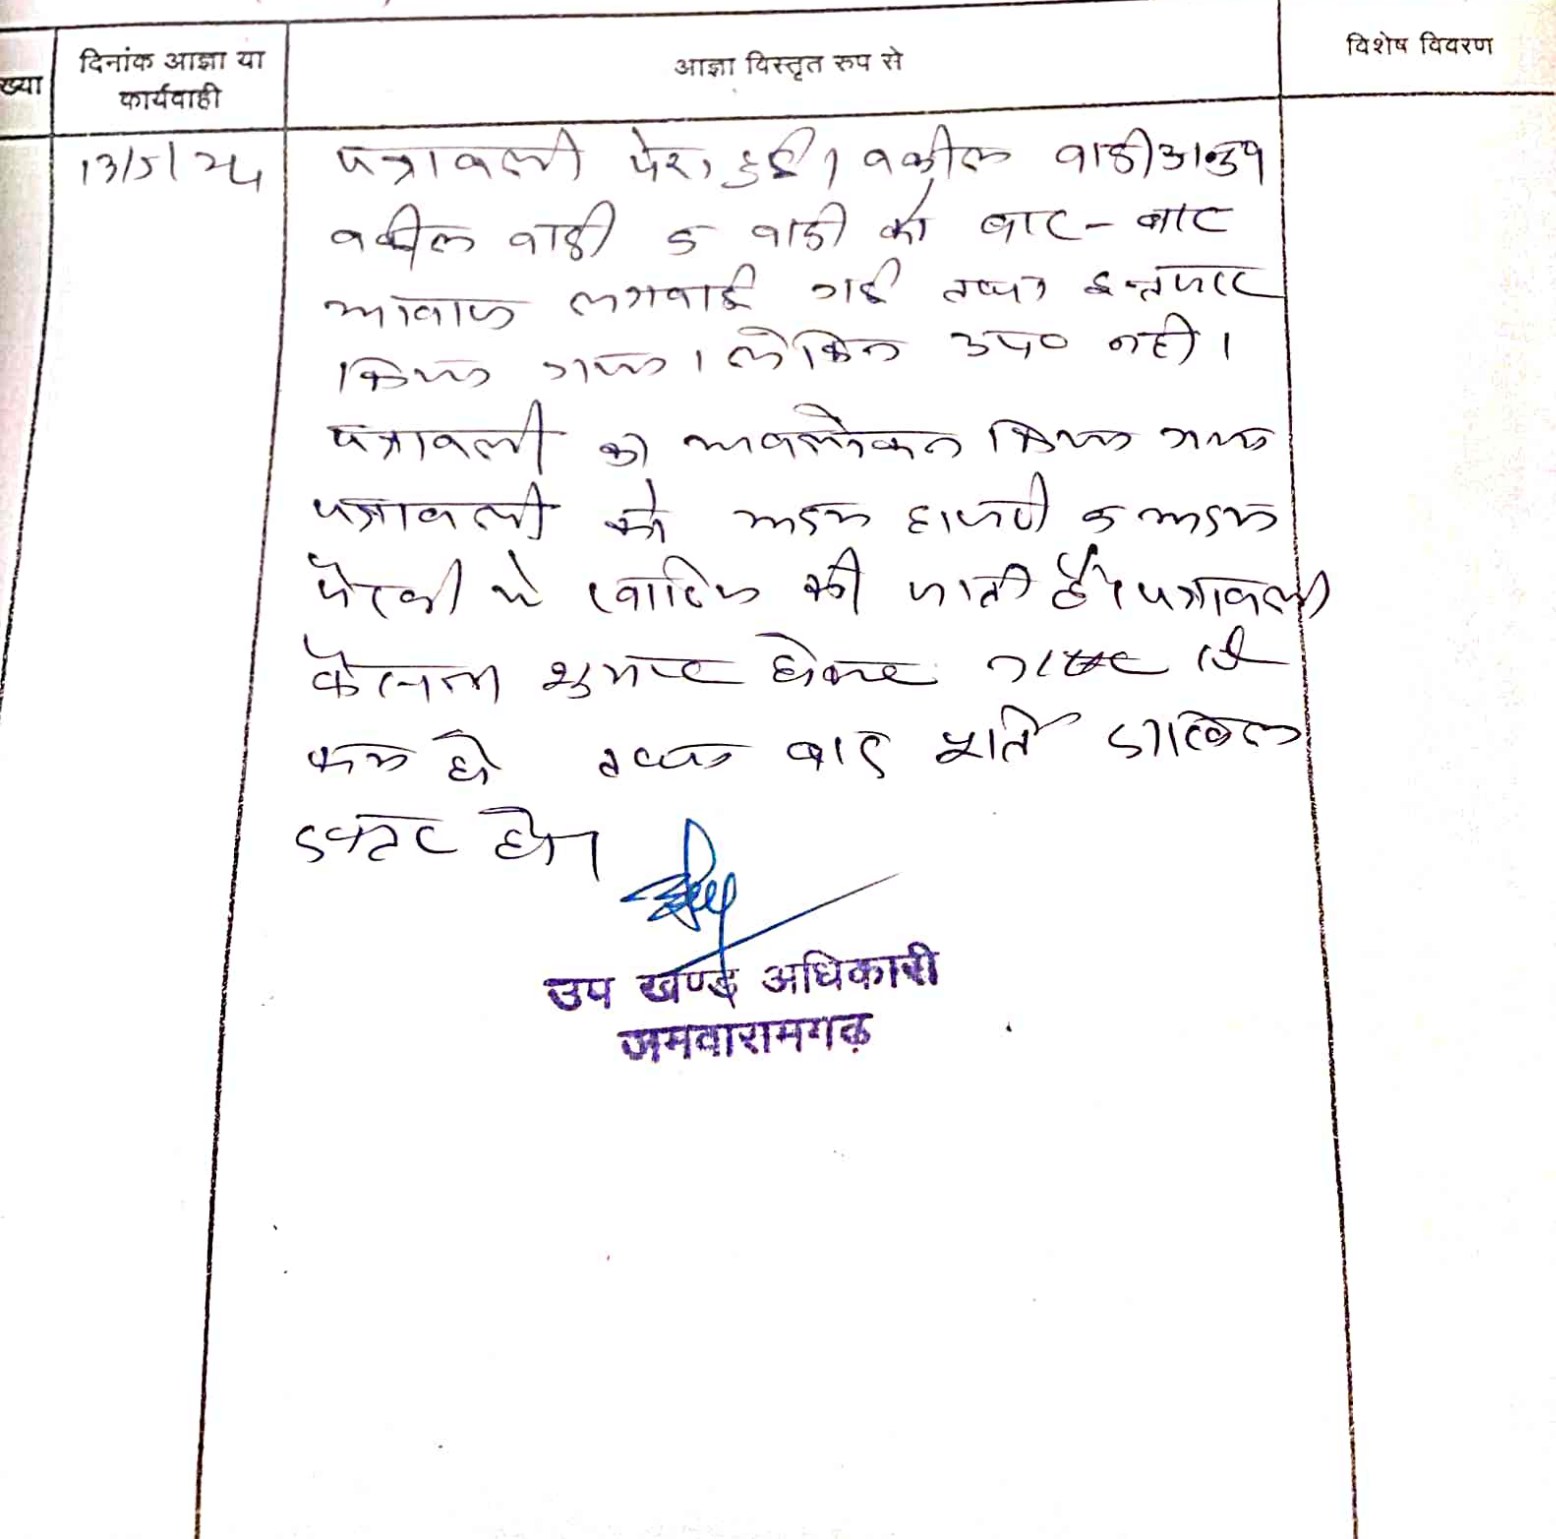 ख्या
दिनांक आज्ञा या
कार्यवाही
आज्ञा विस्तृत रुप से
विशेष विवरण
13/5/24
पत्रावली पेश हुई। वकील वादी अनुप
वकील वादी व वादी को बार-बार
आवाज लगवाई गई तथा इन्तजार
किया गया। लेकिन उप० नही।
पत्रावली का अवलोकन किया गया
पत्रावली को अदम हाजरी व अदम
पैरवी मे खारिज की जाती है। पत्रावली
फैसला शुमार होकर नम्बर से
कम हो तथा बाद पूर्ति दाखिल
दफ्तर हो।
उप खण्ड अधिकारी
जमवारामगढ़